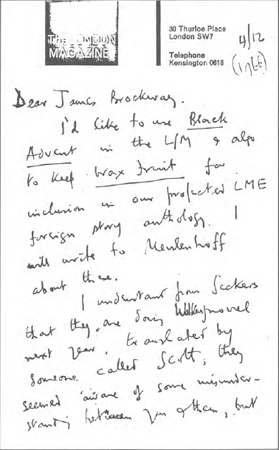 THE LONDON
MAGAZINE
30 Thurloe Place
London SW7
Telephone
Kensington 0618
4/12
(1966)
Dear James Brockway.
I'd like to use Black
Advent in the L/M & also
to keep wax fruit for
inclusion in our projected LME
foreign story anthology. I
will write to Meulenhoff
about these.
I understand from Seckers
that they are doing novel
next year, translated by
someone called Scott; they
seemed aware of some misunder-
standing between you & them, but